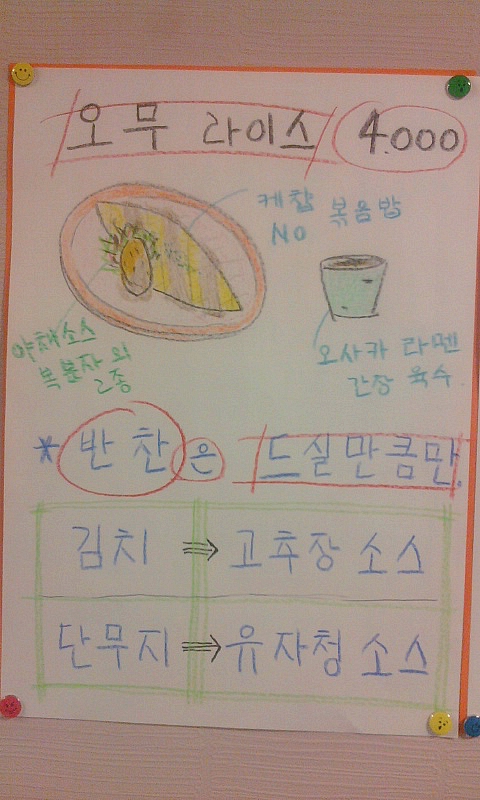 오무 라이스 4.000
케찹 볶음밥
NO
야채소스
복분자 외
2종
오사카 라멘
간장 육수.
* 반찬은 드실만큼만.
김치 ⇒ 고추장 소스
단무지 ⇒ 유자청 소스